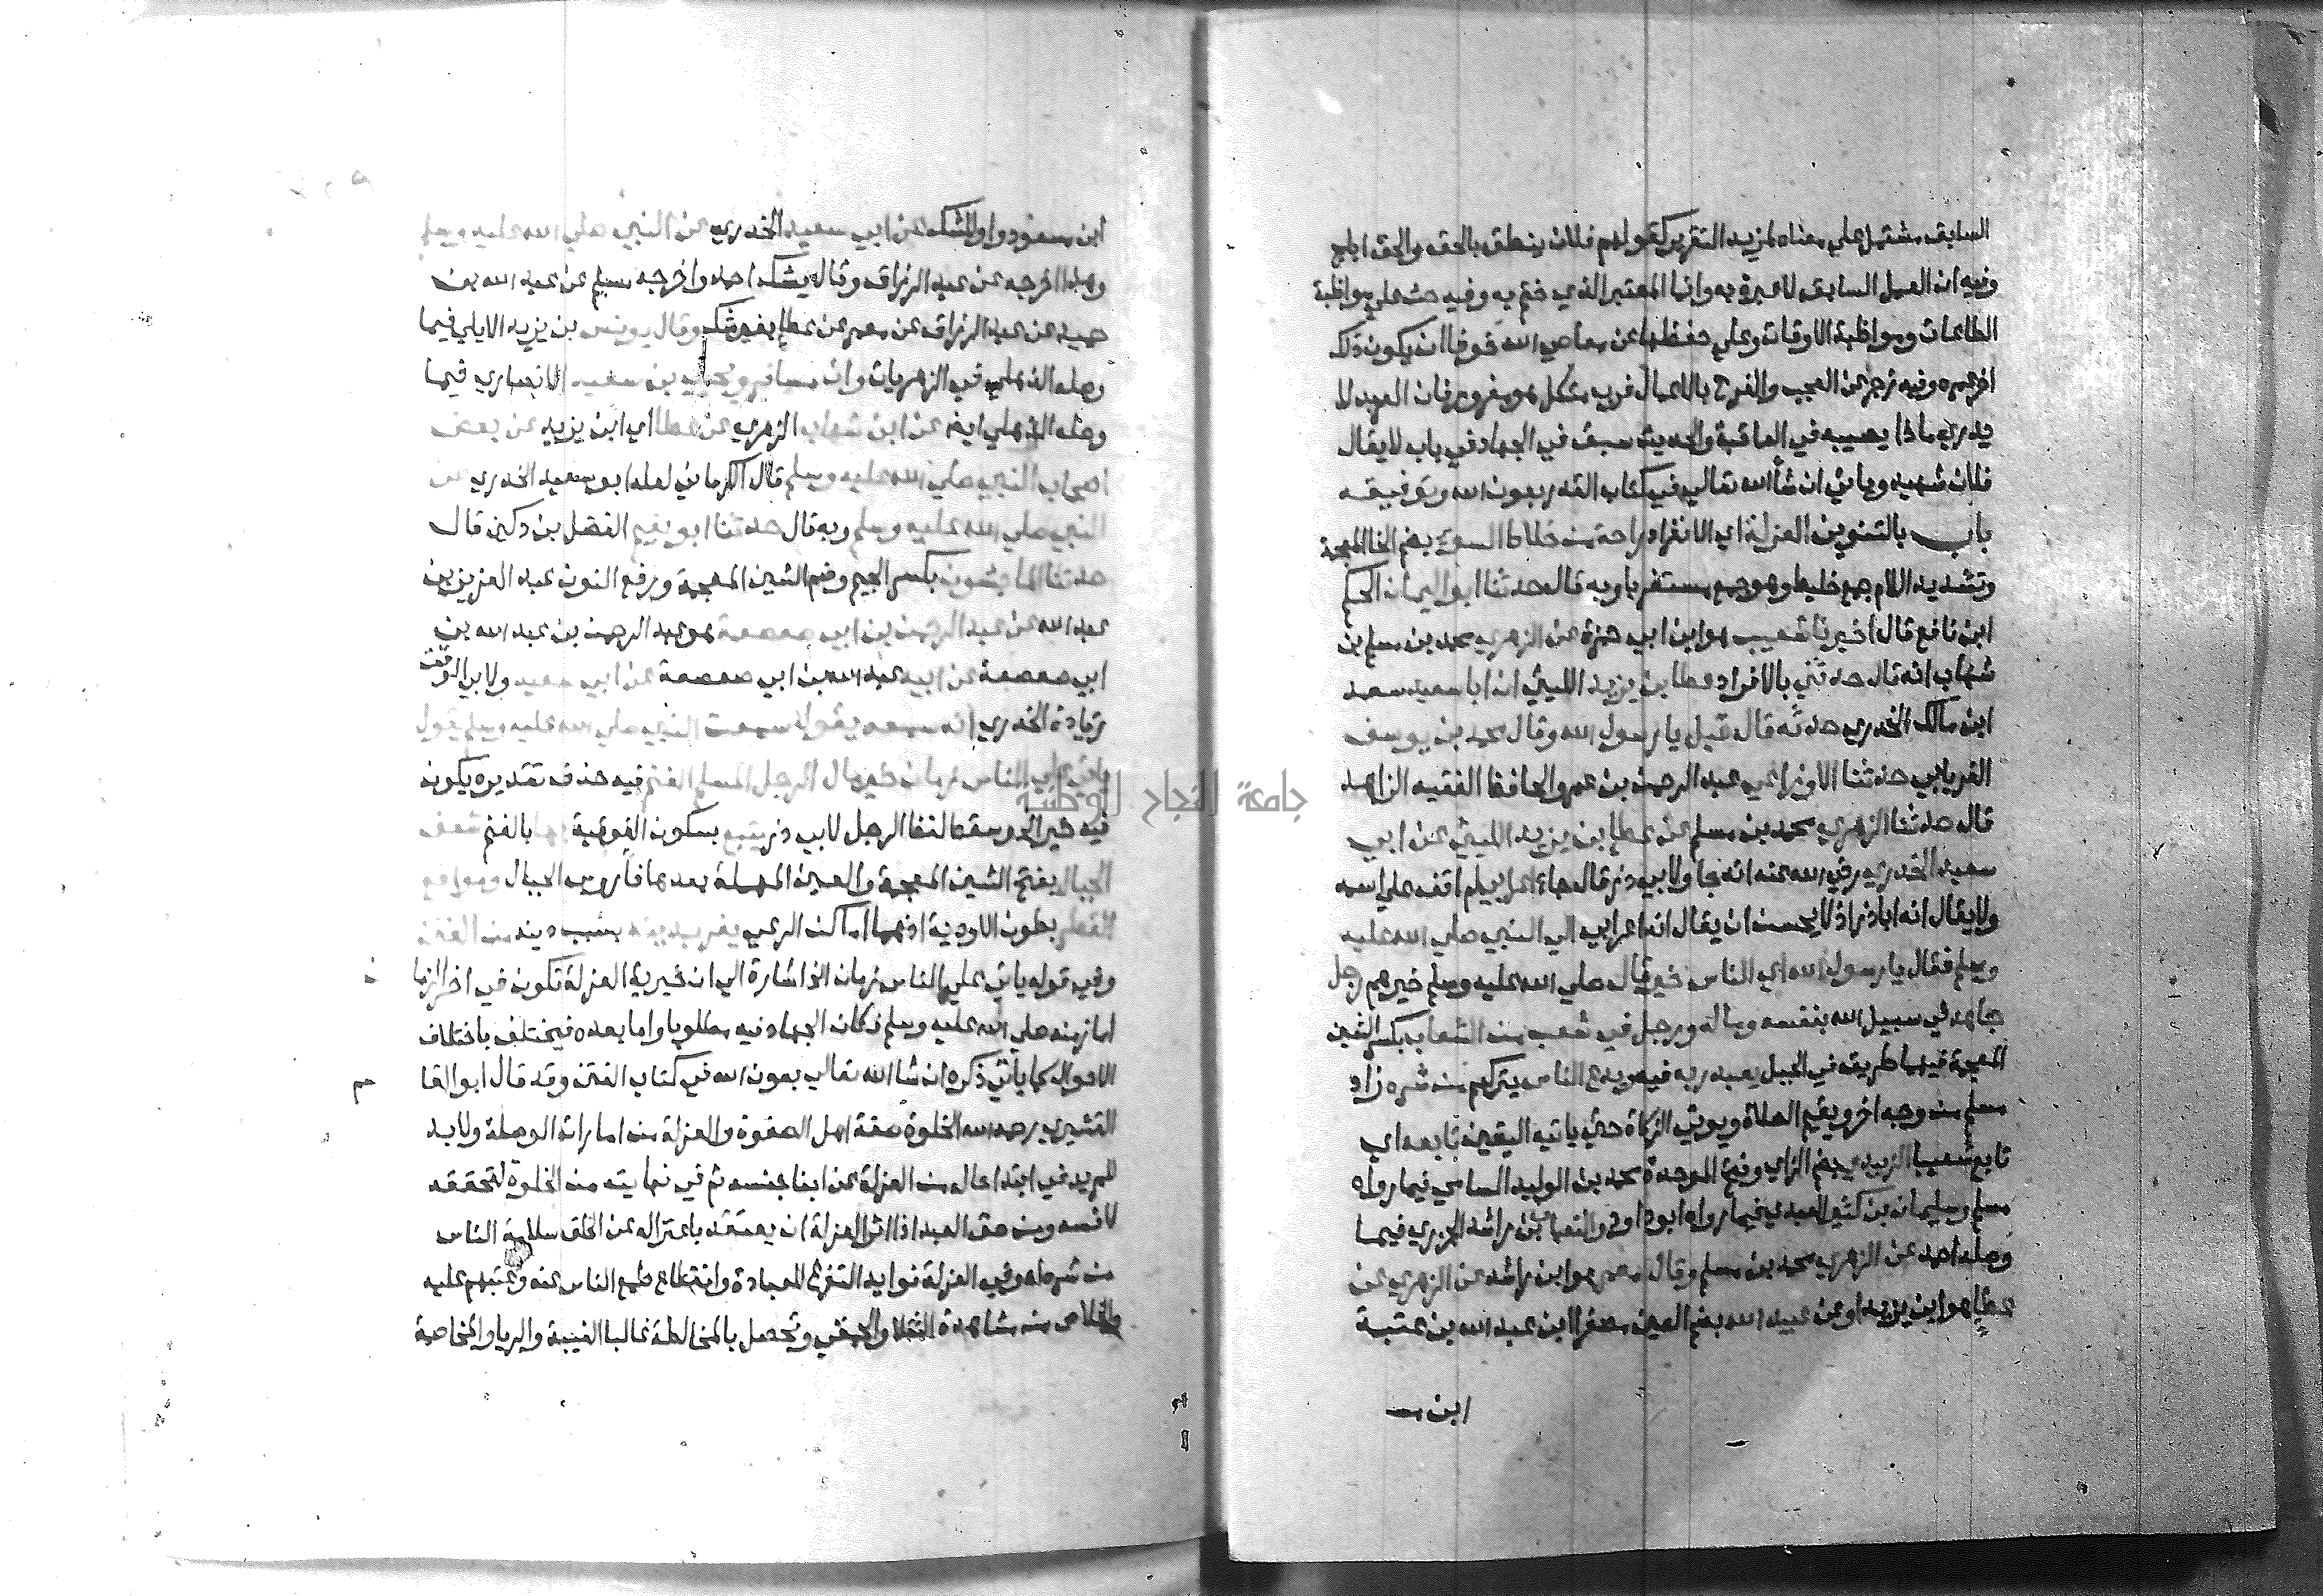 السابق مشتمل علي معناه لمزيد التقرير كقولهم فلان ينطق بالحق والحق ابلج
وفيه ان العمل السابق لا عبرة به وانما المعتبر الذي ختم به وفيه حث علي مواظبة
الطاعات ومواظبة الاوقات وعلي حفظها عن معاصي الله خوفا ان يكون ذلك
اخر عمره وفيه زجر عن العجب والفرح بالاعمال فرب متكل هو مغرور فان العبد لا
يدري ماذا يصيبه في العاقبة والحديث سبق في الجهاد في باب لا يقال
فلان شهيد وياتي ان شاء الله تعالي في كتاب القدر بعون الله وتوفيقه
باب بالتنوين العزلة اي الانفراد راحة من خلاط السوء بضم الخا المعجمة
وتشديد اللام جمع خليط وهو جمع مستغرب وبه قال حدثنا ابو اليمان الحكم
ابن نافع قال اخبرنا شعيب هو ابن ابي حمزة عن الزهري محمد بن مسلم بن
شهاب انه قال حدثني بالافراد عطا بن يزيد الليثي ان ابا سعيد سعد
ابن مالك الخدري حدثه قال قيل يا رسول الله وقال محمد بن يوسف
الفريابي حدثنا الاوزاعي عبد الرحمن بن عمرو الحافظ الفقيه الزاهد
قال حدثنا الزهري محمد بن مسلم عن عطا بن يزيد الليثي عن ابي
سعيد الخدري رضي الله عنه انه جا ولابي ذر قال جاء اعرابي لم اقف علي اسمه
ولا يقال انه ابا ذر اذ لا يحسن ان يقال انه اعرابي الي النبي صلي الله عليه
وسلم فقال يا رسول الله اي الناس خير قال صلي الله عليه وسلم خيرهم رجل
جاهد في سبيل الله بنفسه وماله ورجل في شعب من الشعاب بكسر الشين
المعجمة فيهما طريق في الجبل يعبد ربه فيه ويدع الناس يتركهم من شره زاد
مسلم من وجه اخر ويقيم الصلاة ويوتي الزكاة حتي ياتيه اليقين تابعه اي
تابع شعيبا الزبيدي بضم الزاي وفتح الموحدة محمد بن الوليد السامي فيما رواه
مسلم وسليمان بن كثير العبدي فيما رواه ابو داود والنعمان بن راشد الجزري فيما
وصله احمد عن الزهري محمد بن مسلم وقال معمر هو ابن راشد عن الزهري عن
عطا هو ابن يزيد او عن عبيد الله بضم العين مصغرا ابن عبد الله بن عتبة
ابن مسعود
ابن مسعود والشك عن ابي سعيد الخدري عن النبي صلي الله عليه وسلم
وهذا اخرجه عن عبد الرزاق وقال يشك احمد واخرجه مسلم عن عبد الله بن
حميد عن عبد الرزاق عن معمر عن عطا بغير شك وقال يونس بن يزيد الايلي فيما
وصله الذهلي في الزهريات وابن مسافر ويحيي بن سعيد الانصاري فيما
وصله الذهلي ايضا عن ابن شهاب الزهري عن عطا اي ابن يزيد عن بعض
اصحاب النبي صلي الله عليه وسلم قال الكرماني لعله ابو سعيد الخدري عن
النبي صلي الله عليه وسلم وبه قال حدثنا ابو نعيم الفضل بن دكين قال
حدثنا الماجشون بكسر الجيم وضم الشين المعجمة ورفع النون عبد العزيز بن
عبد الله عن عبد الرحمن بن ابي صعصعة هو عبد الرحمن بن عبد الله بن
ابي صعصعة عن ابيه عبد الله بن ابي صعصعة عن ابي سعيد ولابي الوقت
زيادة الخدري انه سمعه يقول سمعت النبي صلي الله عليه وسلم يقول
ياتي علي الناس زمان خير مال الرجل المسلم الغنم فيه حذف تقديره يكون
فيه خير الخ وسقط لفظ الرجل لابي ذر يتبع بسكون الفوقية بها بالغنم شعف
الجبال بفتح الشين المعجمة والعين المهملة بعدها فا رءوس الجبال ومواقع
القطر بطون الاودية اذ هما اماكن الرعي يفر بدينه بسبب دينه من الفتن
وفي قوله ياتي علي الناس زمان الخ اشارة الي ان خيرية العزلة تكون في اخر الزما
اما زمنه صلي الله عليه وسلم فكان الجهاد فيه مطلوبا واما بعده فيختلف باختلاف
الاحوال كما ياتي ذكره ان شا الله تعالي بعون الله في كتاب الفتن وقد قال ابو القا
القشيري رحمه الله الخلوة صفة اهل الصفوة والعزلة من امارات الوصلة ولا بد
للمريد في ابتدا حاله من العزلة عن ابنا جنسه ثم في نهايته من الخلوة لتحققه
لانسه ومن حق العبد اذا اثر العزلة ان يعتقد باعتزاله عن الخلق سلامة الناس
من شره وفي العزلة فوايد التفرغ للعبادة وانقطاع طمع الناس عنه وعتبهم عليه
والخلاص من مشاهدة الثقلا والحمقي وتحصل بالمخالطة غالبا الغيبة والريا والمخاصمة
جامعة النجاح الوطنية